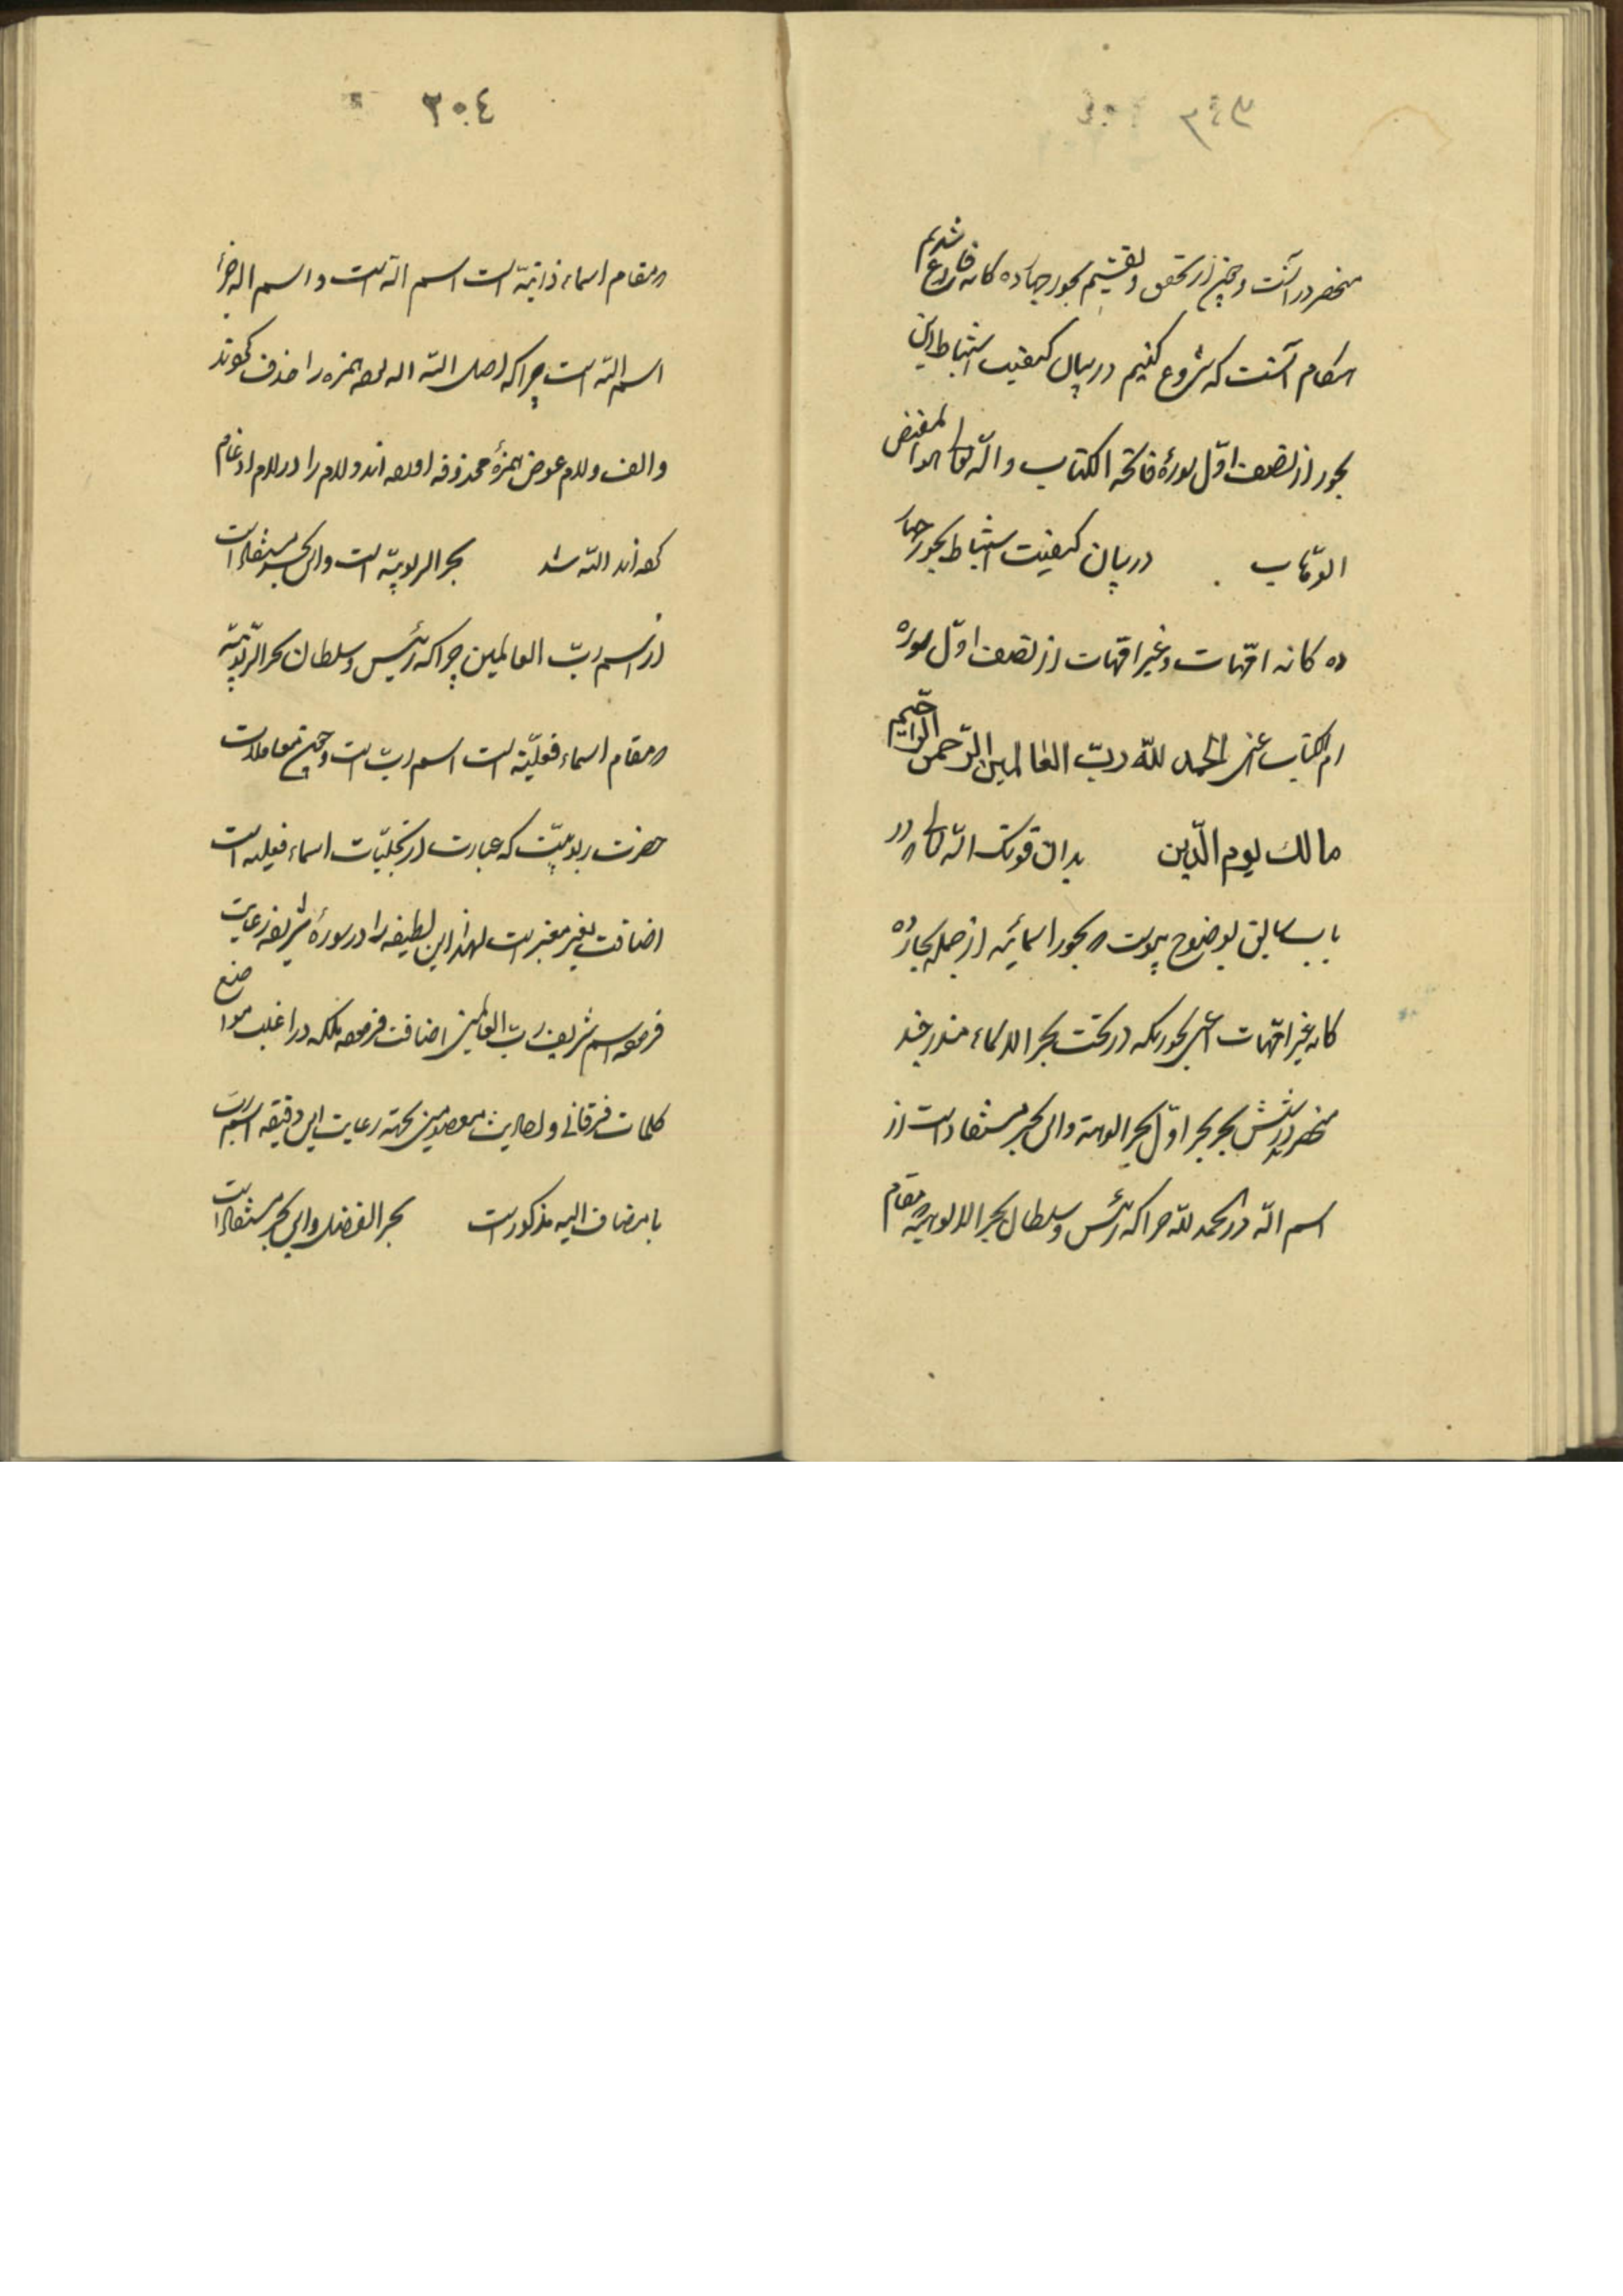 منحصر در آنست و چون از تحقق و تقسیم بحور چهارده کانه فارغ شدیم
هنکام آنست که شروع کنیم در بیان کیفیت استنباط این
بحور از نصف اوّل سورهٔ فاتحة الکتاب و اللّه تعالی هو المفیض
الوهّاب در بیان کیفیت استنباط بحور چهار
ده کانه امّهات و غیر امّهات از نصف اوّل سوره
ام الکتاب اعنی الحمد للّه ربّ العالمین الرّحمن الرّحیم
مالك یوم الدّین بدان قوّتک اللّه تعالی که در
باب سابق بوضوح پیوست که بحور اسمائیه از جمله چهارده
کانه غیر امّهات اعنی بحوریکه در تحت بحر الاسماء مندرجند
منحصر در شش بحر بحر اوّل بحر الوهیة و این بحر مستفاد است از
اسم اللّه در الحمد للّه چرا که رئیس و سلطان بحر الالوهیة که مقام
٢٠٤
که مقام اسماء ذاتیّه است اسم اللّه است و اسم اله جزء
اسم اللّه است چرا که اصل اللّه اله بوده همزه را حذف نموند
و الف و لام عوض همزهٔ محذوفه اورده اند و لام را در لام ادغام
کرده اند اللّه شد بحر الربوبیّه است و این بحر مستفاد است
از اسم ربّ العالمین چرا که رئیس و سلطان بحر الرّبوبیّه
که مقام اسماء فعلیّه است اسم ربّ است و چون معاملات
حضرت ربوبیّت که عبارت از تجلیّات اسماء فعلیه است
اضافت بغیر معتبر است لهذا این لطیفه را در سورهٔ شریفه رعایت
فرموده اسم شریف ربّ العالمین اضافت فرموده بلکه در اغلب مواضع
کلمات فرقانی و احادیث معصومین بجهته رعایت این دقیقه اسم ربّ
با مضاف الیه مذکور است بحر الفضل و این بحر مستفاد است